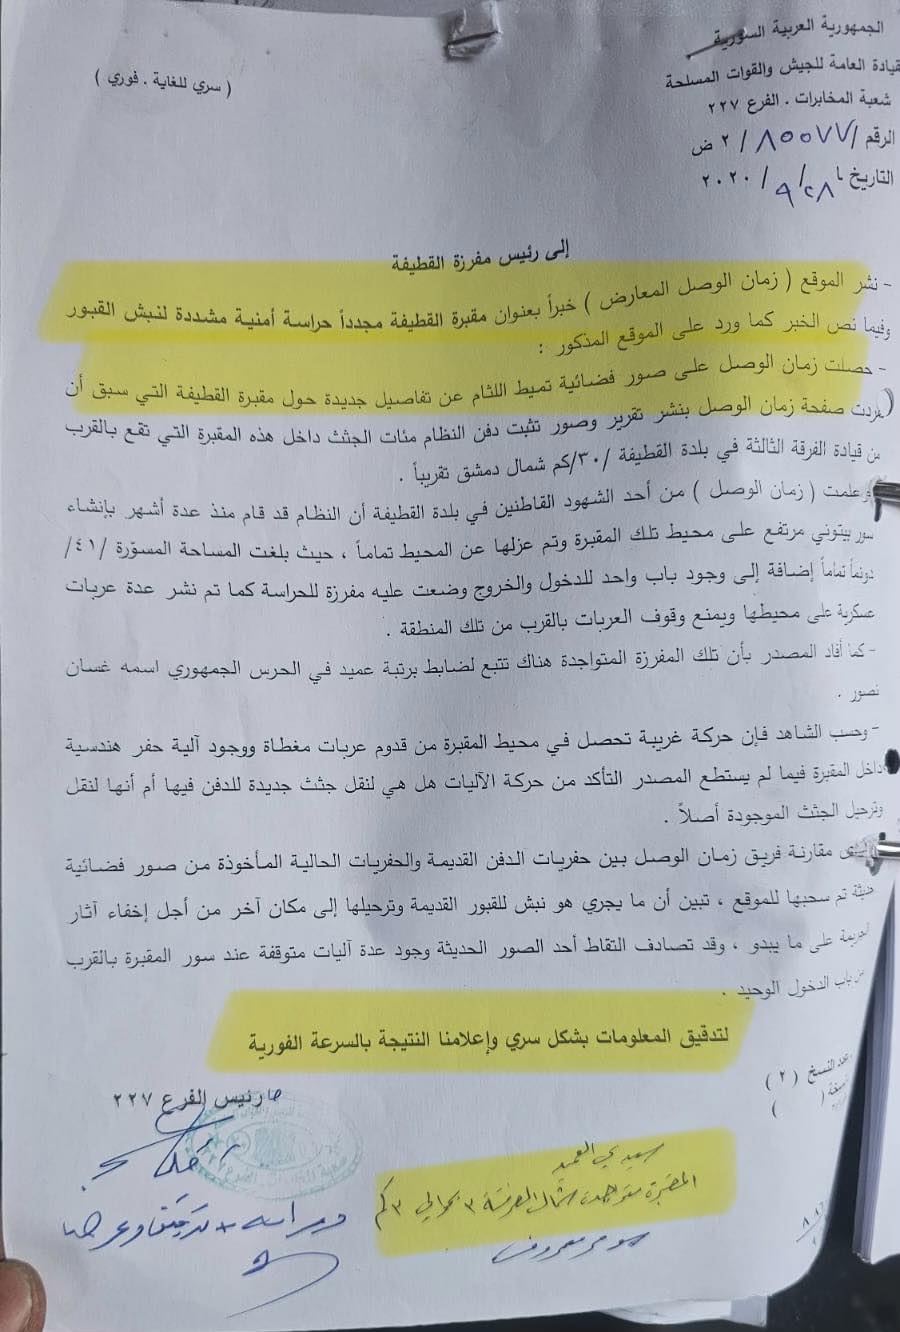 الجمهورية العربية السورية
القيادة العامة للجيش والقوات المسلحة
شعبة المخابرات . الفرع ٢٢٧
( سري للغاية . فوري )
الرقم /٨٥٥٧٧ / ٢ ض
التاريخ ٢٨/ ٩ / ٢٠٢٠
إلى رئيس مفرزة القطيفة
- نشر الموقع ( زمان الوصل المعارض ) خبراً بعنوان مقبرة القطيفة مجدداً حراسة أمنية مشددة لنبش القبور
وفيما نص الخبر كما ورد على الموقع المذكور :
- حصلت زمان الوصل على صور فضائية تميط اللثام عن تفاصيل جديدة حول مقبرة القطيفة التي سبق أن
صفحة زمان الوصل بنشر تقرير وصور تثبت دفن النظام مئات الجثث داخل هذه المقبرة التي تقع بالقرب
من قيادة الفرقة الثالثة في بلدة القطيفة /٣٠/كم شمال دمشق تقريباً .
وعلمت ( زمان الوصل ) من أحد الشهود القاطنين في بلدة القطيفة أن النظام قد قام منذ عدة أشهر بإنشاء
سور بيتوني مرتفع على محيط تلك المقبرة وتم عزلها عن المحيط تماماً ، حيث بلغت المساحة المسوّرة /٤١/
دونماً تماماً إضافة إلى وجود باب واحد للدخول والخروج وضعت عليه مفرزة للحراسة كما تم نشر عدة عربات
عسكرية على محيطها ويمنع وقوف العربات بالقرب من تلك المنطقة .
- كما أفاد المصدر بأن تلك المفرزة المتواجدة هناك تتبع لضابط برتبة عميد في الحرس الجمهوري اسمه غسان
نصور .
- وحسب الشاهد فإن حركة غريبة تحصل في محيط المقبرة من قدوم عربات مغطاة ووجود آلية حفر هندسية
داخل المقبرة فيما لم يستطع المصدر التأكد من حركة الآليات هل هي لنقل جثث جديدة للدفن فيها أم أنها لنقل
وترحيل الجثث الموجودة أصلاً .
مقارنة فريق زمان الوصل بين حفريات الدفن القديمة والحفريات الحالية المأخوذة من صور فضائية
حديثة تم سحبها للموقع ، تبين أن ما يجري هو نبش للقبور القديمة وترحيلها إلى مكان آخر من أجل إخفاء آثار
الجريمة على ما يبدو ، وقد تصادف التقاط أحد الصور الحديثة وجود عدة آليات متوقفة عند سور المقبرة بالقرب
من باب الدخول الوحيد .
لتدقيق المعلومات بشكل سري وإعلامنا النتيجة بالسرعة الفورية
عدد النسخ ( ٢ )
نسخة ( )
رئيس الفرع ٢٢٧
سيدي العميد
المقبرة متواجدة شمال الفرقة ٣ بحوالي ٣ كم